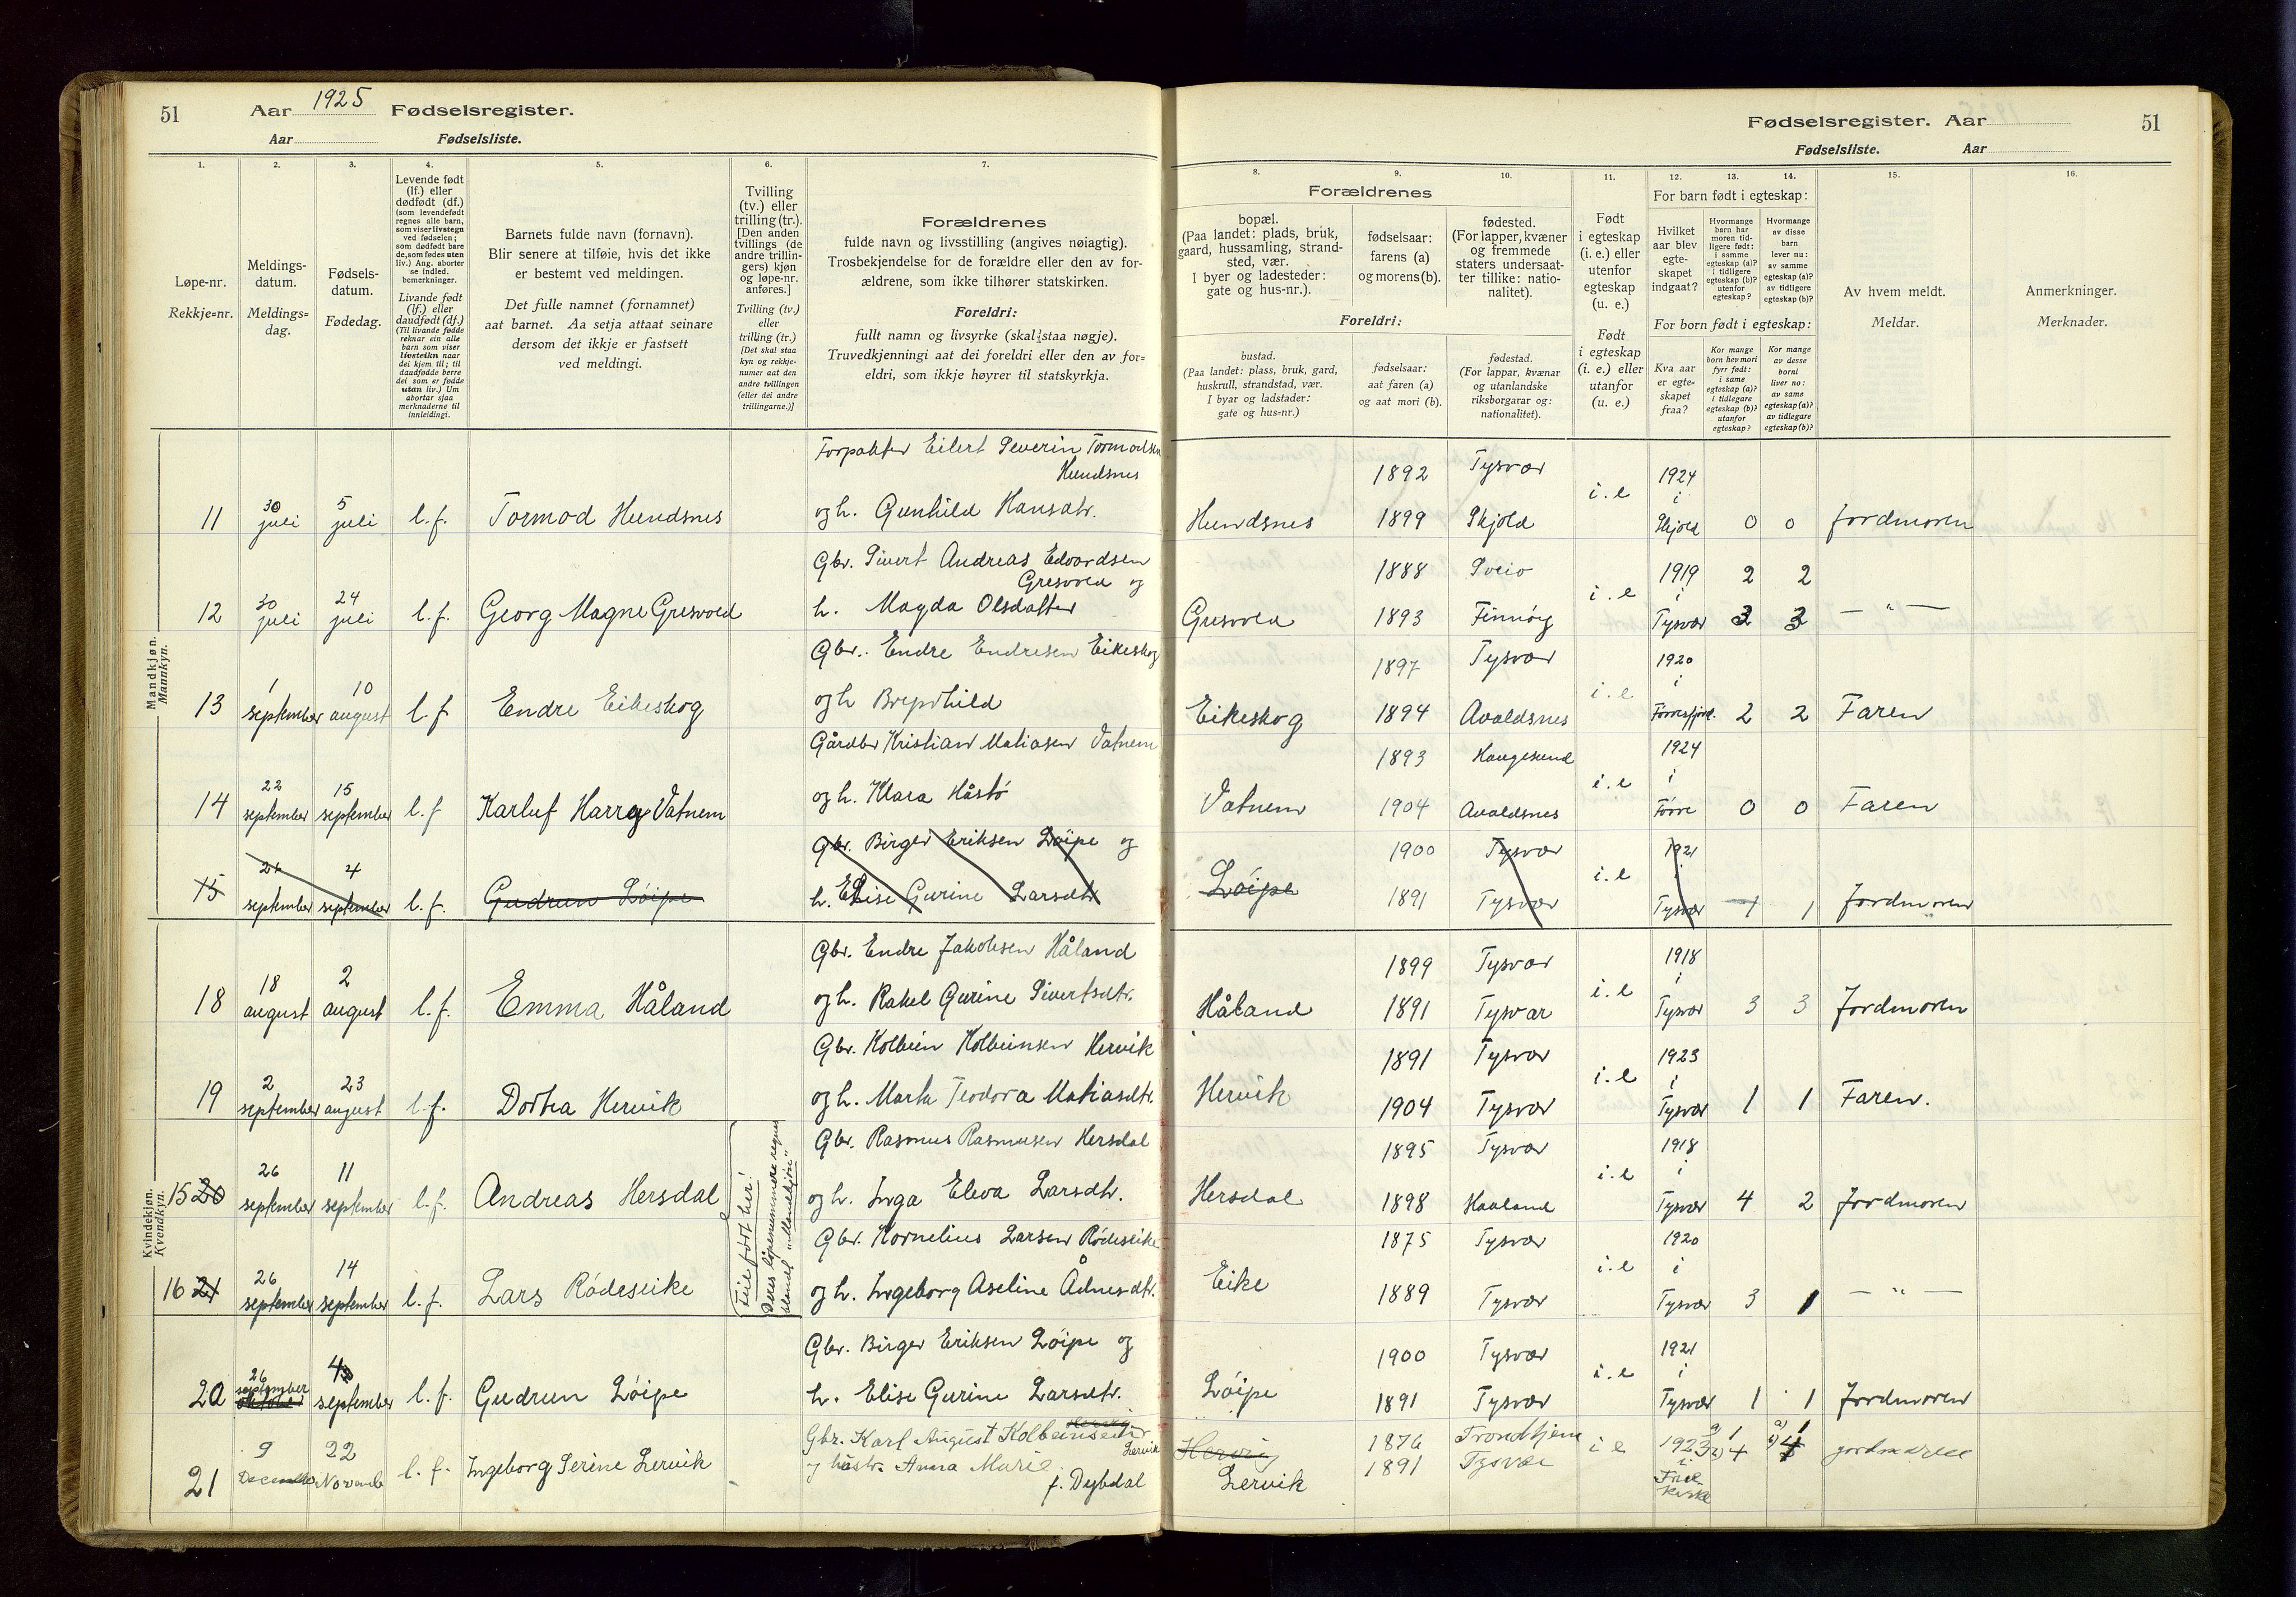 51 Aar 1925 Fødselsregister.
Aar Fødselsliste.
Fødselsregister. Aar 51
Fødselsliste. Aar
1. 2. 3. 4. 5. 6. 7. 8. 9. 10. 11. 12. 13. 14. 15. 16.
Løpe-nr.
Rekkje=nr.
Meldings-
datum.
Meldings=
dag.
Fødsels-
datum.
Fødedag.
Levende født
(lf.) eller
dødfødt (df.)
(som levendefødt
regnes alle barn,
som viser livstegn
ved fødselen;
som dødfødt bare
de, som fødes uten
liv.) Ang. aborter
se indled.
bemerkninger.
Livande født
(lf.) eller
daudfødt (df.)
(Til livande fødde
reknar ein alle
barn som viser
livsteikn naar
dei kjem til; til
daudfødde berre
dei som er fødde
utan liv.) Um
abortar sjaa
merknaderne til
innleidingi.
Barnets fulde navn (fornavn).
Blir senere at tilføie, hvis det ikke
er bestemt ved meldingen.
Det fulle namnet (fornamnet)
aat barnet. Aa setja attaat seinare
dersom det ikkje er fastsett
ved meldingi.
Tvilling
(tv.) eller
trilling (tr.).
[Den anden
tvillings (de
andre trillin-
gers) kjøn
og løpe-nr.
anføres.]
Tvilling (tv.)
eller
trilling (tr.)
[Det skal staa
kyn og rekkje-
numer aat den
andre tvillingen
(eller dei andre
trillingarne.)]
Forældrenes
fulde navn og livsstilling (angives nøiagtig).
Trosbekjendelse for de forældre eller den av for-
ældrene, som ikke tilhører statskirken.
Foreldri:
fullt namn og livsyrke (skal staa nøgje).
Truvedkjenningi aat dei foreldri eller den av for=
eldri, som ikkje høyrer til statskyrkja.
Forældrenes
bopæl.
(Paa landet: plads, bruk,
gaard, hussamling, strand-
sted, vær.
I byer og ladesteder:
gate og hus-nr.).
fødselsaar:
farens (a)
og morens (b).
fødested.
(For lapper, kvæner
og fremmede
staters undersaat-
ter tillike: natio-
nalitet).
Foreldri:
bustad.
(Paa landet: plass, bruk, gard,
huskrull, strandstad, vær.
I byar og ladstader:
gate og hus-nr.)
fødselsaar:
aat faren (a)
og aat mori (b).
fødestad.
(For lappar, kvænar
og utanlandske
riksborgarar og:
nationalitet).
Født
i egteskap
(i. e.) eller
utenfor
egteskap
(u. e.)
Født
i egteskap
(i. e.) eller
utanfor
(u. e.)
For barn født i egteskap:
Hvilket
aar blev
egte-
skapet
indgaat?
Hvormange
barn har
moren tid-
ligere født:
i samme
egteskap (a)?
i tidligere
egteskap (b)?
utenfor
egteskap?
Hvormange
av disse
barn
lever nu:
av samme
egteskap (a)?
av tidligere
egteskap (b)?
For born født i egteskap:
Kva aar
er egte=
skapet
fraa?
Kor mange
born hev mori
fyrr født:
i same
egteskap (a)?
i tidlegare
egteskap (b)?
utanfor
egteskap?
Kor mange
av desse
borni
liver no:
av same
egteskap (a)?
av tidlegare
egteskap (b)?
Av hvem meldt.
Meldar.
Anmerkninger.
Merknader.
Mandkjøn.
Mannkyn.
Forpakter Eilert Severin Tormodsen
Hundsnes 1892 Tysvær 1924
11 30 juli 5 juli l.f. Tormod Hundsnes og h. Gunhild Hansdtr. Hundsnes 1899 Skjold i.e i Skjold 0 0 Jordmoren
Gbr. Sivert Andreas Edvardsen
Gresvold og 1888 Sveio 1919 2 2
12 30 juli 24 juli l.f. Georg Magne Gresvold h. Magda Olsdatter Gresvold 1893 Finnøy i.e i Tysvær 3 3 — " —
Gbr. Endre Endresen Eikeskog 1897 Tysvær 1920
13 1 september 10 august l.f Endre Eikeskog og h Eikeskog 1894 Avaldsnes i.e i 2 2 Faren
Gårdbr Kristian Matiasen Vatnem 1893 Haugesund 1924
14 22 september 15 september l.f Karluf Harry Vatnem og h. Klara Håstø Vatnem 1904 Avaldsnes i.e i Førre 0 0 Faren
Gbr. Birger Eriksen Løipe og 1900 Tysvær 1921
15 september 4 september l.f. Gudrun Løipe h. Elise Gurine Larsdtr Løipe 1891 Tysvær i.e Tysvær 1 1 Jordmoren
Kvindekjøn.
Kvendkyn.
Gbr. Endre Jakobsen Håland 1899 Tysvær 1918
18 18 august 2 august l.f. Emma Håland og h. Rakel Gurine Sivertsdtr. Håland 1891 Tysvær i.e i Tysvær 3 3 Jordmoren
Gbr. Kolbein Kolbeinsen Hervik 1891 Tysvær 1923
19 2 september 23 august l.f. Dortea Hervik og h. Marta Teodora Matiasdtr. Hervik 1904 Tysvær i.e i Tysvær 1 1 Faren.
Gbr. Rasmus Rasmussen Hersdal 1895 Tysvær 1918
15 20 26 september 11 september l.f. Andreas Hersdal og h. Inga Eleva Larsdtr. Hersdal 1898 Haaland i.e i Tysvær 4 2 Jordmoren
Feil ført her!
Deres løpenummere regnes
blandt "Mandkjøn"
Gbr. Kornelius Larsen Rødeseike 1875 Tysvær 1920
16 21 26 september 14 september l.f. Lars Rødeseike og h. Ingeborg Aseline Ådnesdtr. Eike 1889 Tysvær i.e i Tysvær 3 1 — " —
Gbr. Birger Eriksen Løipe og 1900 Tysvær 1921
20 26 september oktober 4 september l.f. Gudrun Løipe h. Elise Gurine Larsdtr. Løipe 1891 Tysvær i.e i Tysvær 1 1 Jordmoren
Gbr. Karl August Kolbeinsen Lervik Hervig 1876 Trondhjem a) 1 a) 1
21 9 December 22 Novemb l.f. Ingeborg Serine Lervik og hustr. Anna Marie f. Dybdal Lervik 1891 Tysvær i e 1923 i Frikirke 4 4 jordmoren